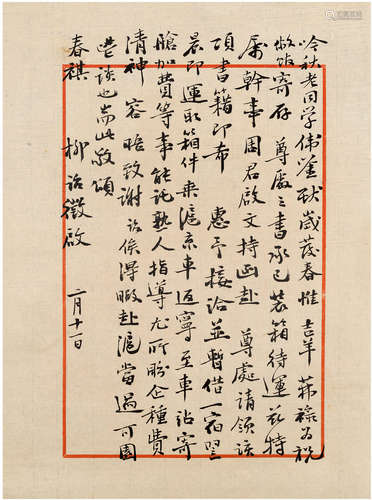 吟秋老同学伟鉴獻歲發春惟 吉羊茀祿為祝
敝館寄存 尊處之書承已裝箱待運茲特
屬幹事周君啟文持函赴 尊處請領該
項書籍即希 惠予接洽並暫借一宿翌
晨即運取箱件乘滬京車返寧至車站寄
艙加費等事能託熟人指導尤所盼企種費
清神 容晤致謝 詒俟得暇赴滬當過可園
罄談也耑此敬頌
春祺 柳詒徵啟
二月十一日